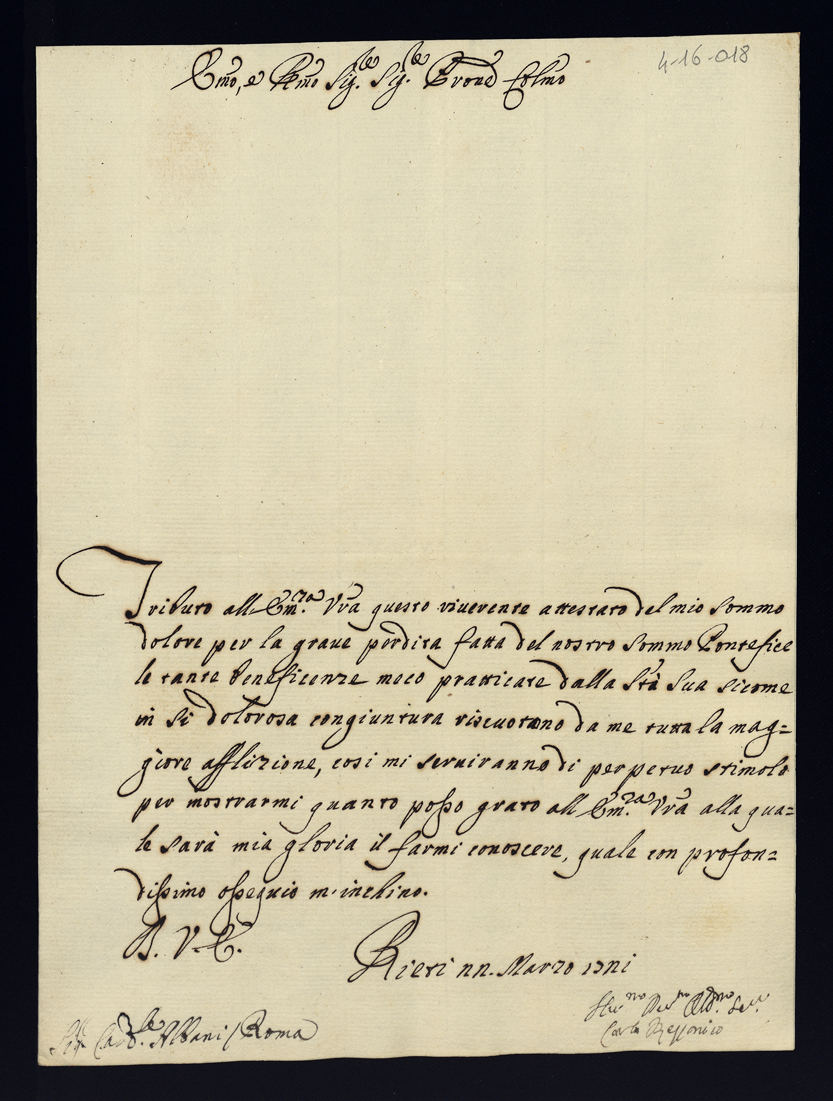 4-16-018
Emo, e Rmo Sig.re Sig.re Prone Colmo
Tributo all'Em.za Vra questo riverente attestato del mio sommo
dolore per la grave perdita fatta del nostro sommo Pontefice
le tante beneficenze meco pratticate dalla Stà Sua sicome
in si dolorosa congiuntura riscuotono da me tutta la mag=
giore afflizione, così mi serviranno di perpetuo stimolo
per mostrarmi quanto posso grato all'Em.za Vra alla qua=
le sarà mia gloria il farmi conoscere, quale con profon=
dissimo ossequio m'inchino.
B. V. E.
Rieti 22. Marzo 1721
Hu.mo De.mo Obd.mo Ser.e
Carlo Rezzonico
Sig.r Card.le Albani / Roma